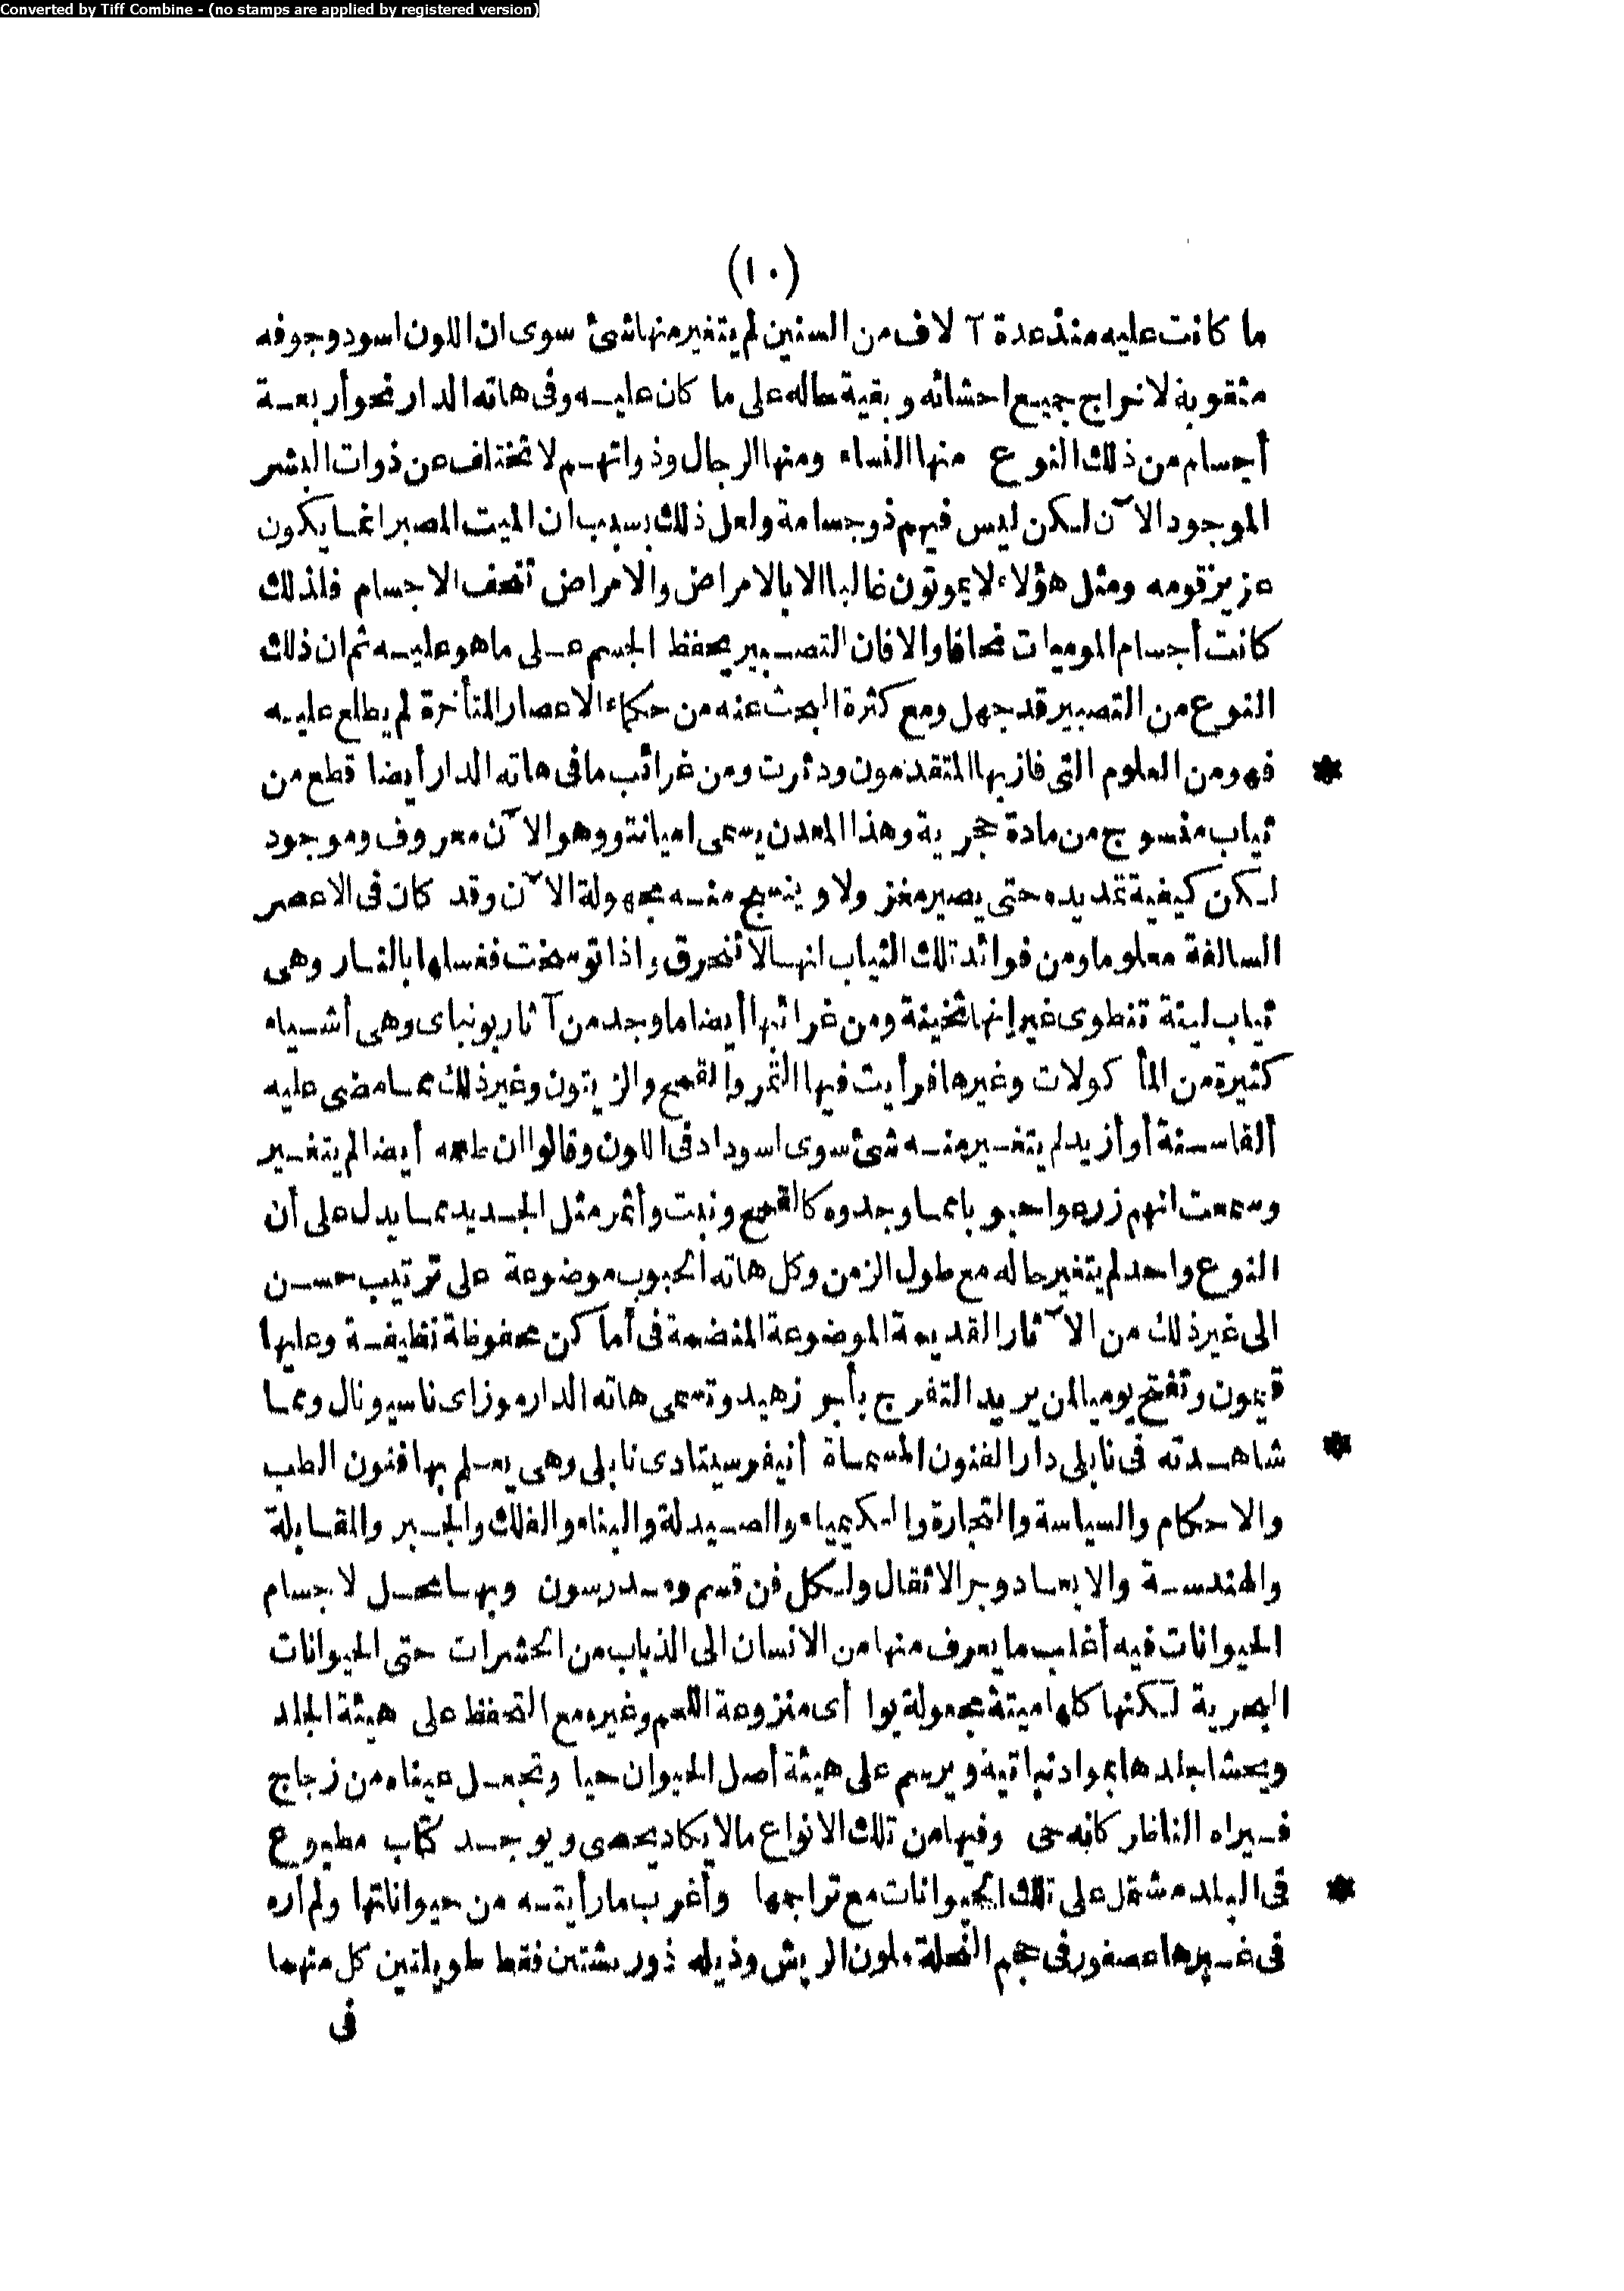 Converted by Tiff Combine - (no stamps are applied by registered version)
(١٠)
ما كانت عليه منذ عدة آلاف من السنين لم يتغير منها شئ سوى ان اللون اسود وجوفه
مثقوبة لاخراج جميع احشائه وبقية حاله على ما كان عليه وفى هاته الدار نحو أربعة
أجسام من ذلك النوع منها النساء ومنها الرجال وذواتهم لا تختلف عن ذوات البشر
الموجود الآن لكن ليس فيهم ذو جسامة ولعل ذلك بسبب ان الميت المصبر انما يكون
عزيز قومه ومثل هؤلاء لا يموتون غالبا الا بالامراض والامراض تضعف الاجسام فلذلك
كانت أجسام الموميات نحافا والا فان التصبير يحفظ الجسم على ما هو عليه ثم ان ذلك
النوع من التصبير قد جهل ومع كثرة البحث عنه من حكماء الاعصار المتأخرة لم يطلع عليه
فهو من العلوم التى فاز بها المتقدمون ودثرت ومن غرائب ما فى هاته الدار أيضا قطع من *
ثياب منسوج من مادة حجرية وهذا المعدن يسمى اميانتو وهو الآن معروف وموجود
لكن كيفية تمديده حتى يصير مغزولا وينسج منه مجهولة الآن وقد كان فى الاعصر
السالفة معلوما ومن فوائد تلك الثياب انها لا تنحرق واذا توسخت فغسلها بالنار وهى
ثياب لينة تنطوى غير إنها ثخينة ومن غرائبها أيضا ما وجد من آثار بونباى وهى أشياء
كثيرة من المأكولات وغيرها فرأيت فيها التمر والقمح والزيتون وغير ذلك مما مضى عليه
ألفا سنة أو أزيد لم يتغير منه شئ سوى اسوداد فى اللون وقالوا ان طعمه أيضا لم يتغير
وسمعت انهم زرعوا حبوبا مما وجدوه كالقمح ونبت وأثمر مثل الجديد مما يدل على أن
النوع واحد لم يتغير حاله مع طول الزمن وكل هاته الحبوب موضوعة على ترتيب حسن
الى غير ذلك من الآثار القديمة الموضوعة المنضمة فى أماكن محفوظة نظيفة وعليها
قيمون وتفتح يوميا لمن يريد التفرج بأجر زهيد وتسمى هاته الدار موزاى ناسيونال ومما
شاهدته فى نابلى دار الفنون المسماة أنيفرسيتادى نابلى وهى يعلم بها فنون الطب *
والاحكام والسياسة والتجارة والكيمياء والصيدلة والبناء والفلك والجبر والمقابلة
والهندسة والابعاد وجر الاثقال ولكل فن قسم ومدرسون وبها محل لاجسام
الحيوانات فيه أغلب ما يعرف منها من الانسان الى الذباب من الحشرات حتى الحيوانات
البحرية لكنها كلها ميتة مجعولة بوا أى منزوعة اللحم وغيره مع التحفظ على هيئة الجلد
ويحشا جلدها بمواد نباتية ويرسم على هيئة أصل الحيوان حيا وتجعل عيناه من زجاج
فيراه الناظر كانه حى وفيها من تلك الانواع ما لا يكاد يحصى ويوجد كتاب مطبوع
فى البلد مشتمل على تلك الحيوانات مع تراجمها وأغرب ما رأيته من حيواناتها ولم أره *
فى غيرها عصفور فى حجم النحلة ملون الريش وذيله ذو ريشتين فقط طويلتين كل منهما
فى